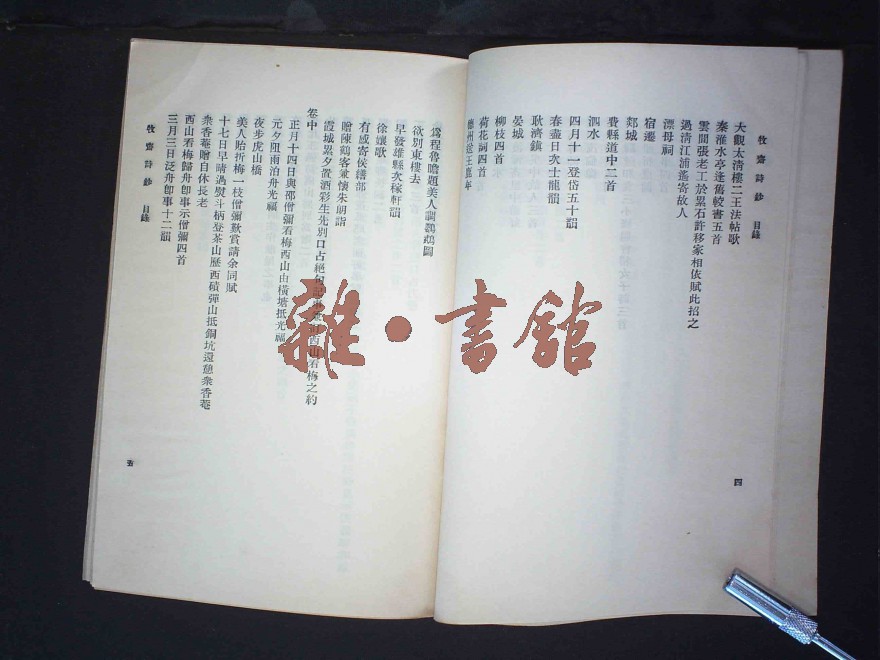 牧齋詩鈔 目錄
大觀太清樓二王法帖歌
秦淮水亭逢舊較書五首
雲間張老工於累石許移家相依賦此招之
過清江浦遙寄故人
漂母祠
宿遷
郯城
費縣道中二首
泗水
四月十一登岱五十韻
春盡日次士龍韻
耿濟鎮
晏城
柳枝四首
荷花詞四首
四
爲程魯瞻題美人調鸚鵡圖
欲別東樓去
早發雄縣次稼軒韻
徐孃歌
有感寄侯繕部
贈陳鶴客兼懷朱朗詣
霞城累夕置酒彩生先別口占絕句記事兼訂西山看梅之約
卷中
正月十四日與邵僧彌看梅西山由橫塘抵光福
元夕阻雨泊舟光福
夜步虎山橋
美人貽折梅一枝僧彌歎賞請余同賦
十七日早晴過熨斗柄登茶山歷西磧彈山抵銅坑還憩衆香菴
衆香菴贈自休長老
西山看梅歸舟卽事示僧彌四首
三月三日泛舟卽事十二韻
牧齋詩鈔 目錄
五
雜·書舘